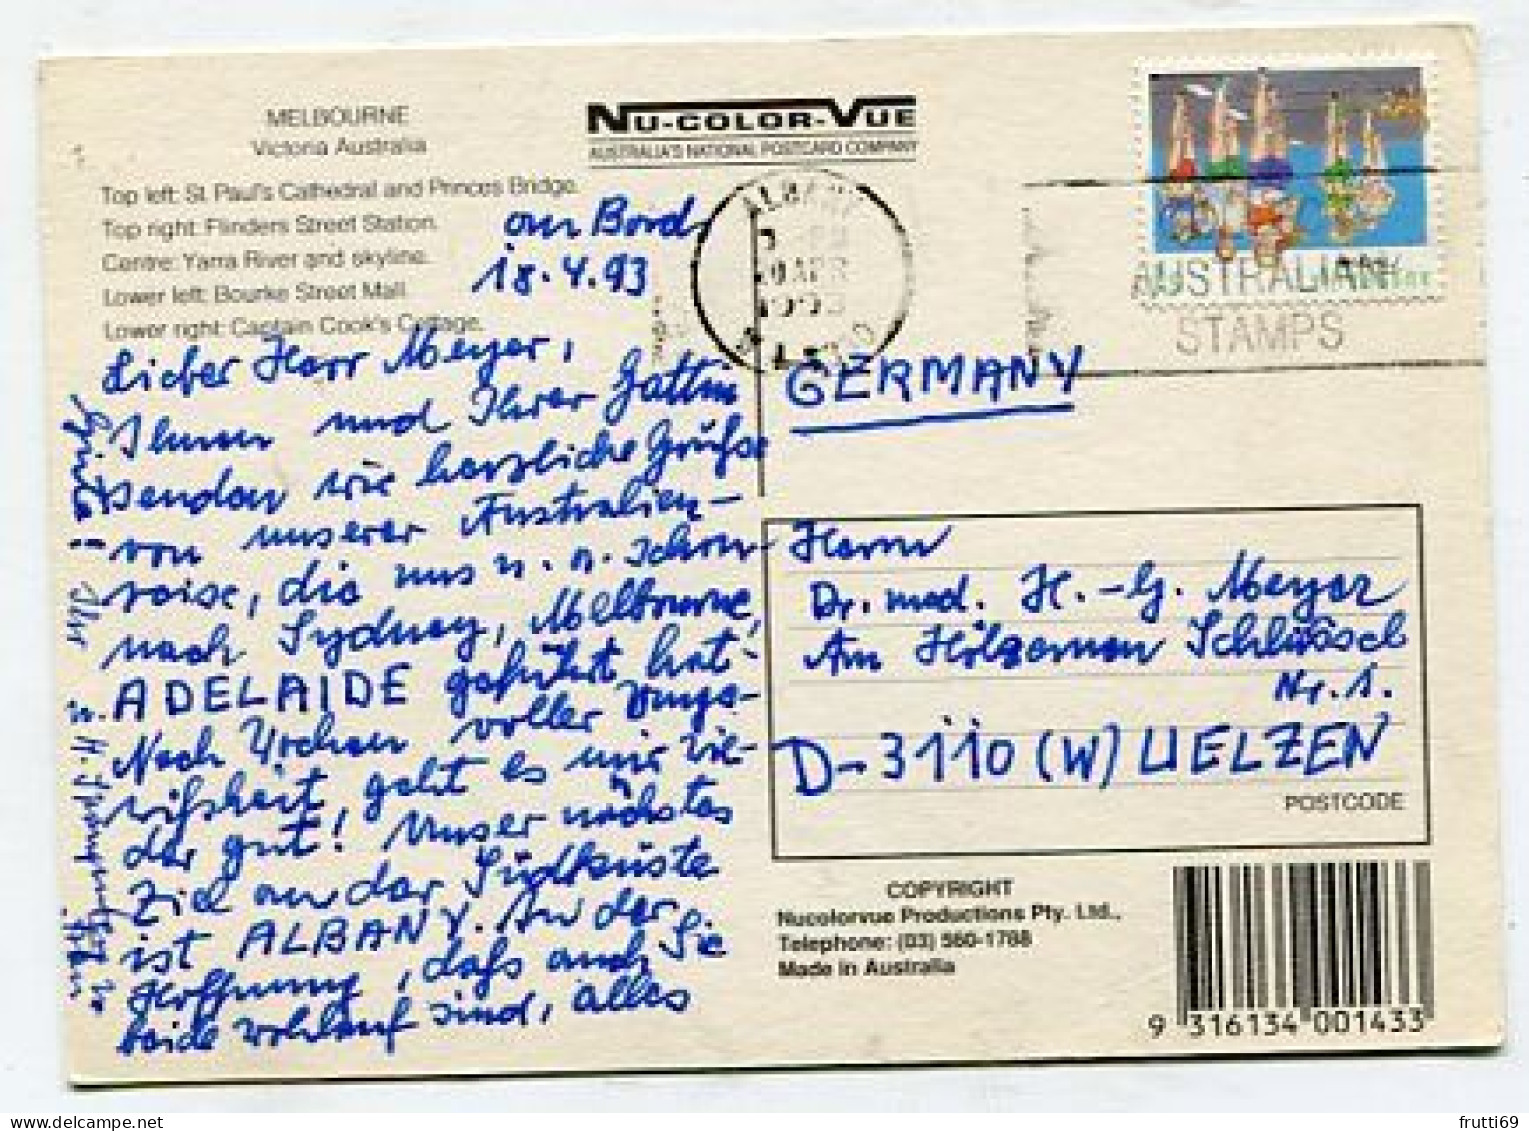 MELBOURNE
Victoria Australia
Top left: St. Paul's Cathedral and Princes Bridge.
Top right: Flinders Street Station.
Centre: Yarra River and skyline.
Lower left: Bourke Street Mall.
Lower right: Captain Cook's Cottage.
NU-COLOR-VUE
AUSTRALIA'S NATIONAL POSTCARD COMPANY
an Bord,
18.4.93
Lieber Herr Meyer,
Ihnen und Ihrer Gattin
senden wir herzliche Grüße
von unserer Australien-
reise, die uns u. a. schon
nach Sydney, Melbourne,
ADELAIDE geführt hat.
Nach Wochen voller Unge-
wißheit, geht es mir wie-
der gut! Unser nächstes
Ziel an der Südküste
ist ALBANY. In der
Hoffnung, daß auch Sie
beide wohlauf sind, alles
Gute! Ihr
ALBANY
APR
1993
AUSTRALIAN
STAMPS
GERMANY
Herrn
Dr. med. H.-G. Meyer
Am Hölzernen Schlüssel
Nr. 1.
D-3110 (W) UELZEN
POSTCODE
COPYRIGHT
Nucolorvue Productions Pty. Ltd.,
Telephone: (03) 560-1788
Made in Australia
9 316134 001433
frutti69